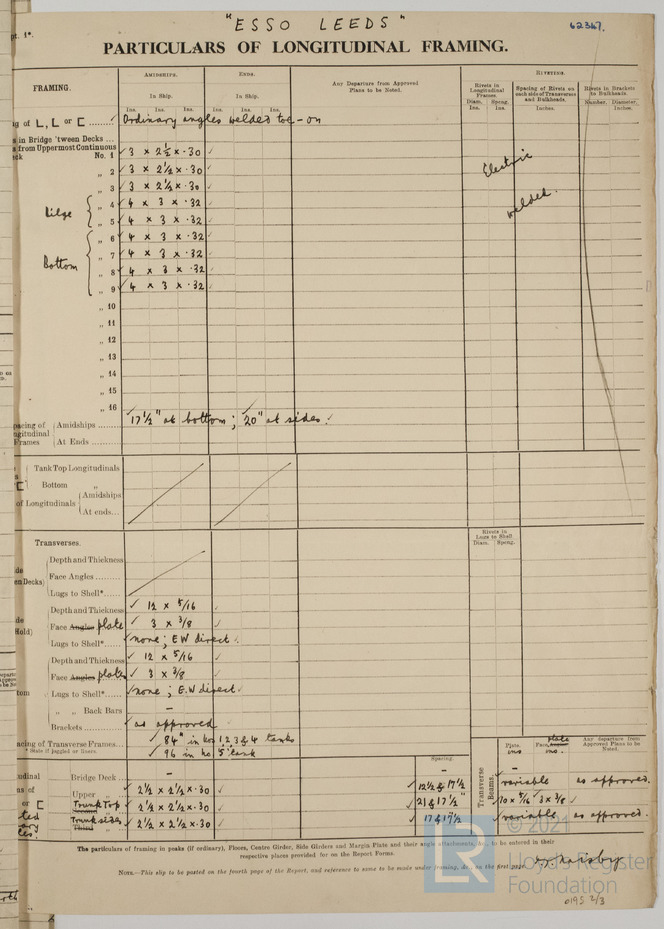 "ESSO LEEDS"
62367.
pt. 1*.
PARTICULARS OF LONGITUDINAL FRAMING.
FRAMING.
AMIDSHIPS.
ENDS.
Any Departure from Approved Plans to be Noted.
RIVETING.
In Ship.
In Ship.
Rivets in Longitudinal Frames.
Spacing of Rivets on each side of Transverses and Bulkheads.
Rivets in Brackets to Bulkheads.
Ins. Ins. Ins. Ins. Ins. Ins.
Diam. Ins. Spcng. Ins. Inches. Number. Diameter, Inches.
g of L, L or [ ...... ✓ Ordinary angles welded toe-on
s in Bridge 'tween Decks ...
s from Uppermost Continuous
ck No. 1 ✓ 3 x 2½ x .30 ✓
„ 2 ✓ 3 x 2½ x .30 ✓
„ 3 ✓ 3 x 2½ x .30 ✓
Electric welded.
Bilge
„ 4 ✓ 4 x 3 x .32 ✓
„ 5 ✓ 4 x 3 x .32 ✓
Bottom
„ 6 ✓ 4 x 3 x .32 ✓
„ 7 ✓ 4 x 3 x .32 ✓
„ 8 ✓ 4 x 3 x .32 ✓
„ 9 ✓ 4 x 3 x .32 ✓
„ 10
„ 11
„ 12
„ 13
„ 14
„ 15
„ 16
pacing of Longitudinal Frames
Amidships ...... 17½" at bottom ; 20" at sides. ✓
At Ends ......
Tank Top Longitudinals
Bottom „
of Longitudinals
Amidships
At ends...
Transverses.
Rivets in Lugs to Shell
Diam. Spcng.
de
en Decks)
Depth and Thickness
Face Angles ......
Lugs to Shell* ......
de
Hold)
Depth and Thickness ✓ 12 x 5/16 ✓
Face Angles plate ✓ 3 x 3/8 ✓
Lugs to Shell* ...... ✓ none ; EW direct ✓
tom
Depth and Thickness ✓ 12 x 5/16 ✓
Face Angles plate ✓ 3 x 3/8 ✓
Lugs to Shell* ...... ✓ none ; E.W direct ✓
„ „ Back Bars –
Brackets ...... ✓ as approved ✓
acing of Transverse Frames... ✓ 84" in nos 1, 2, 3 & 4 tanks
* State if joggled or liners. ✓ 96 in no 5 tank
Spacing.
Transverse Beams.
Plate. ins
Face Angle plate ins.
Any departure from Approved Plans to be Noted.
Bridge Deck ... – – –
Upper „ ✓ 2½ x 2½ x .30 ✓ 12½ & 17½ ✓ variable as approved.
Trunk Top ✓ 2½ x 2½ x .30 ✓ 21 & 17½ ✓ 10 x 5/16 ✓ 3 x 3/8 ✓
Trunk sides Third ✓ 2½ x 2½ x .30 ✓ 17 & 17½ ✓ variable as approved.
The particulars of framing in peaks (if ordinary), Floors, Centre Girder, Side Girders and Margin Plate and their angle attachments, &c., to be entered in their
respective places provided for on the Report Forms.
NOTE.—This slip to be posted on the fourth page of the Report, and reference to same to be made under framing, &c., on the first page.
© 2021
LR
Lloyd's Register
Foundation
0195 2/3